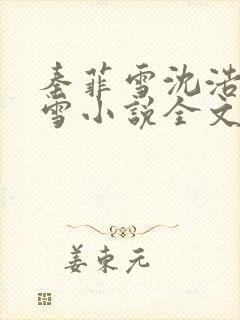 秦菲雪沈浩
雪小说全文
姜东元